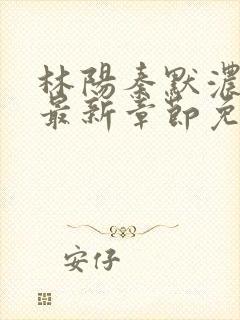 林陽秦默濃
最新章節免
安仔